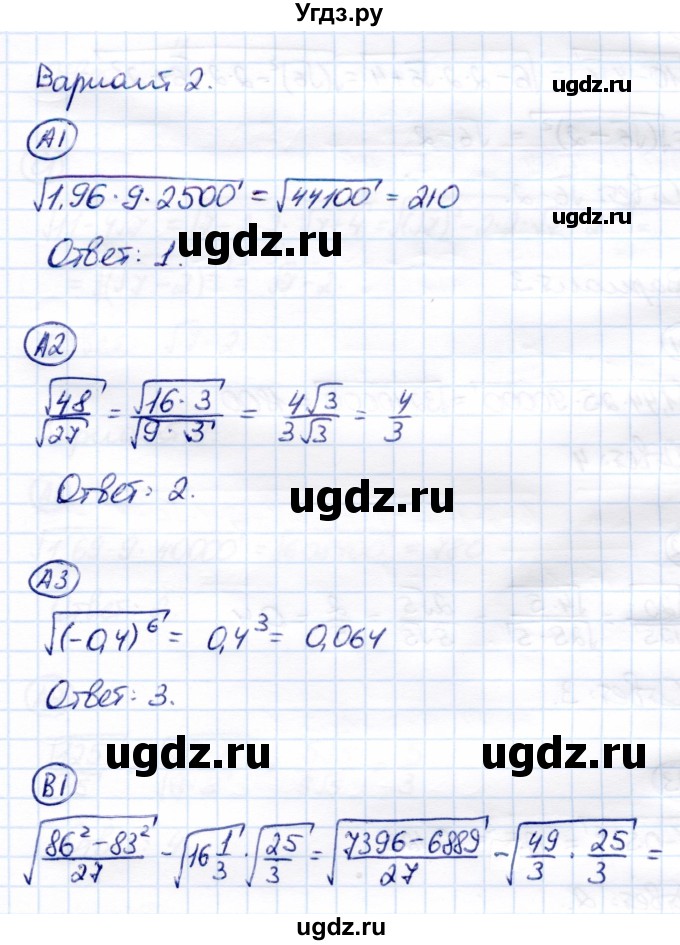 Угдз.ру
Вариант 2.
ugdz.ru
А1
√(1,96 · 9 · 2500) = √44100 = 210
ugdz.ru
Ответ: 1.
ugdz.ru
А2
√48/√27 = √(16 · 3)/√(9 · 3) = 4√3/3√3 = 4/3
ugdz.ru
Ответ: 2.
ugdz.ru
А3
√((-0,4)⁶) = 0,4³ = 0,064
Ответ: 3.
ugdz.ru
ugdz.ru
В1
√((86² - 83²)/27) - √(16 1/3) · √(25/3) = √((7396 - 6889)/27) - √(49/3 · 25/3) =
ugdz.ru